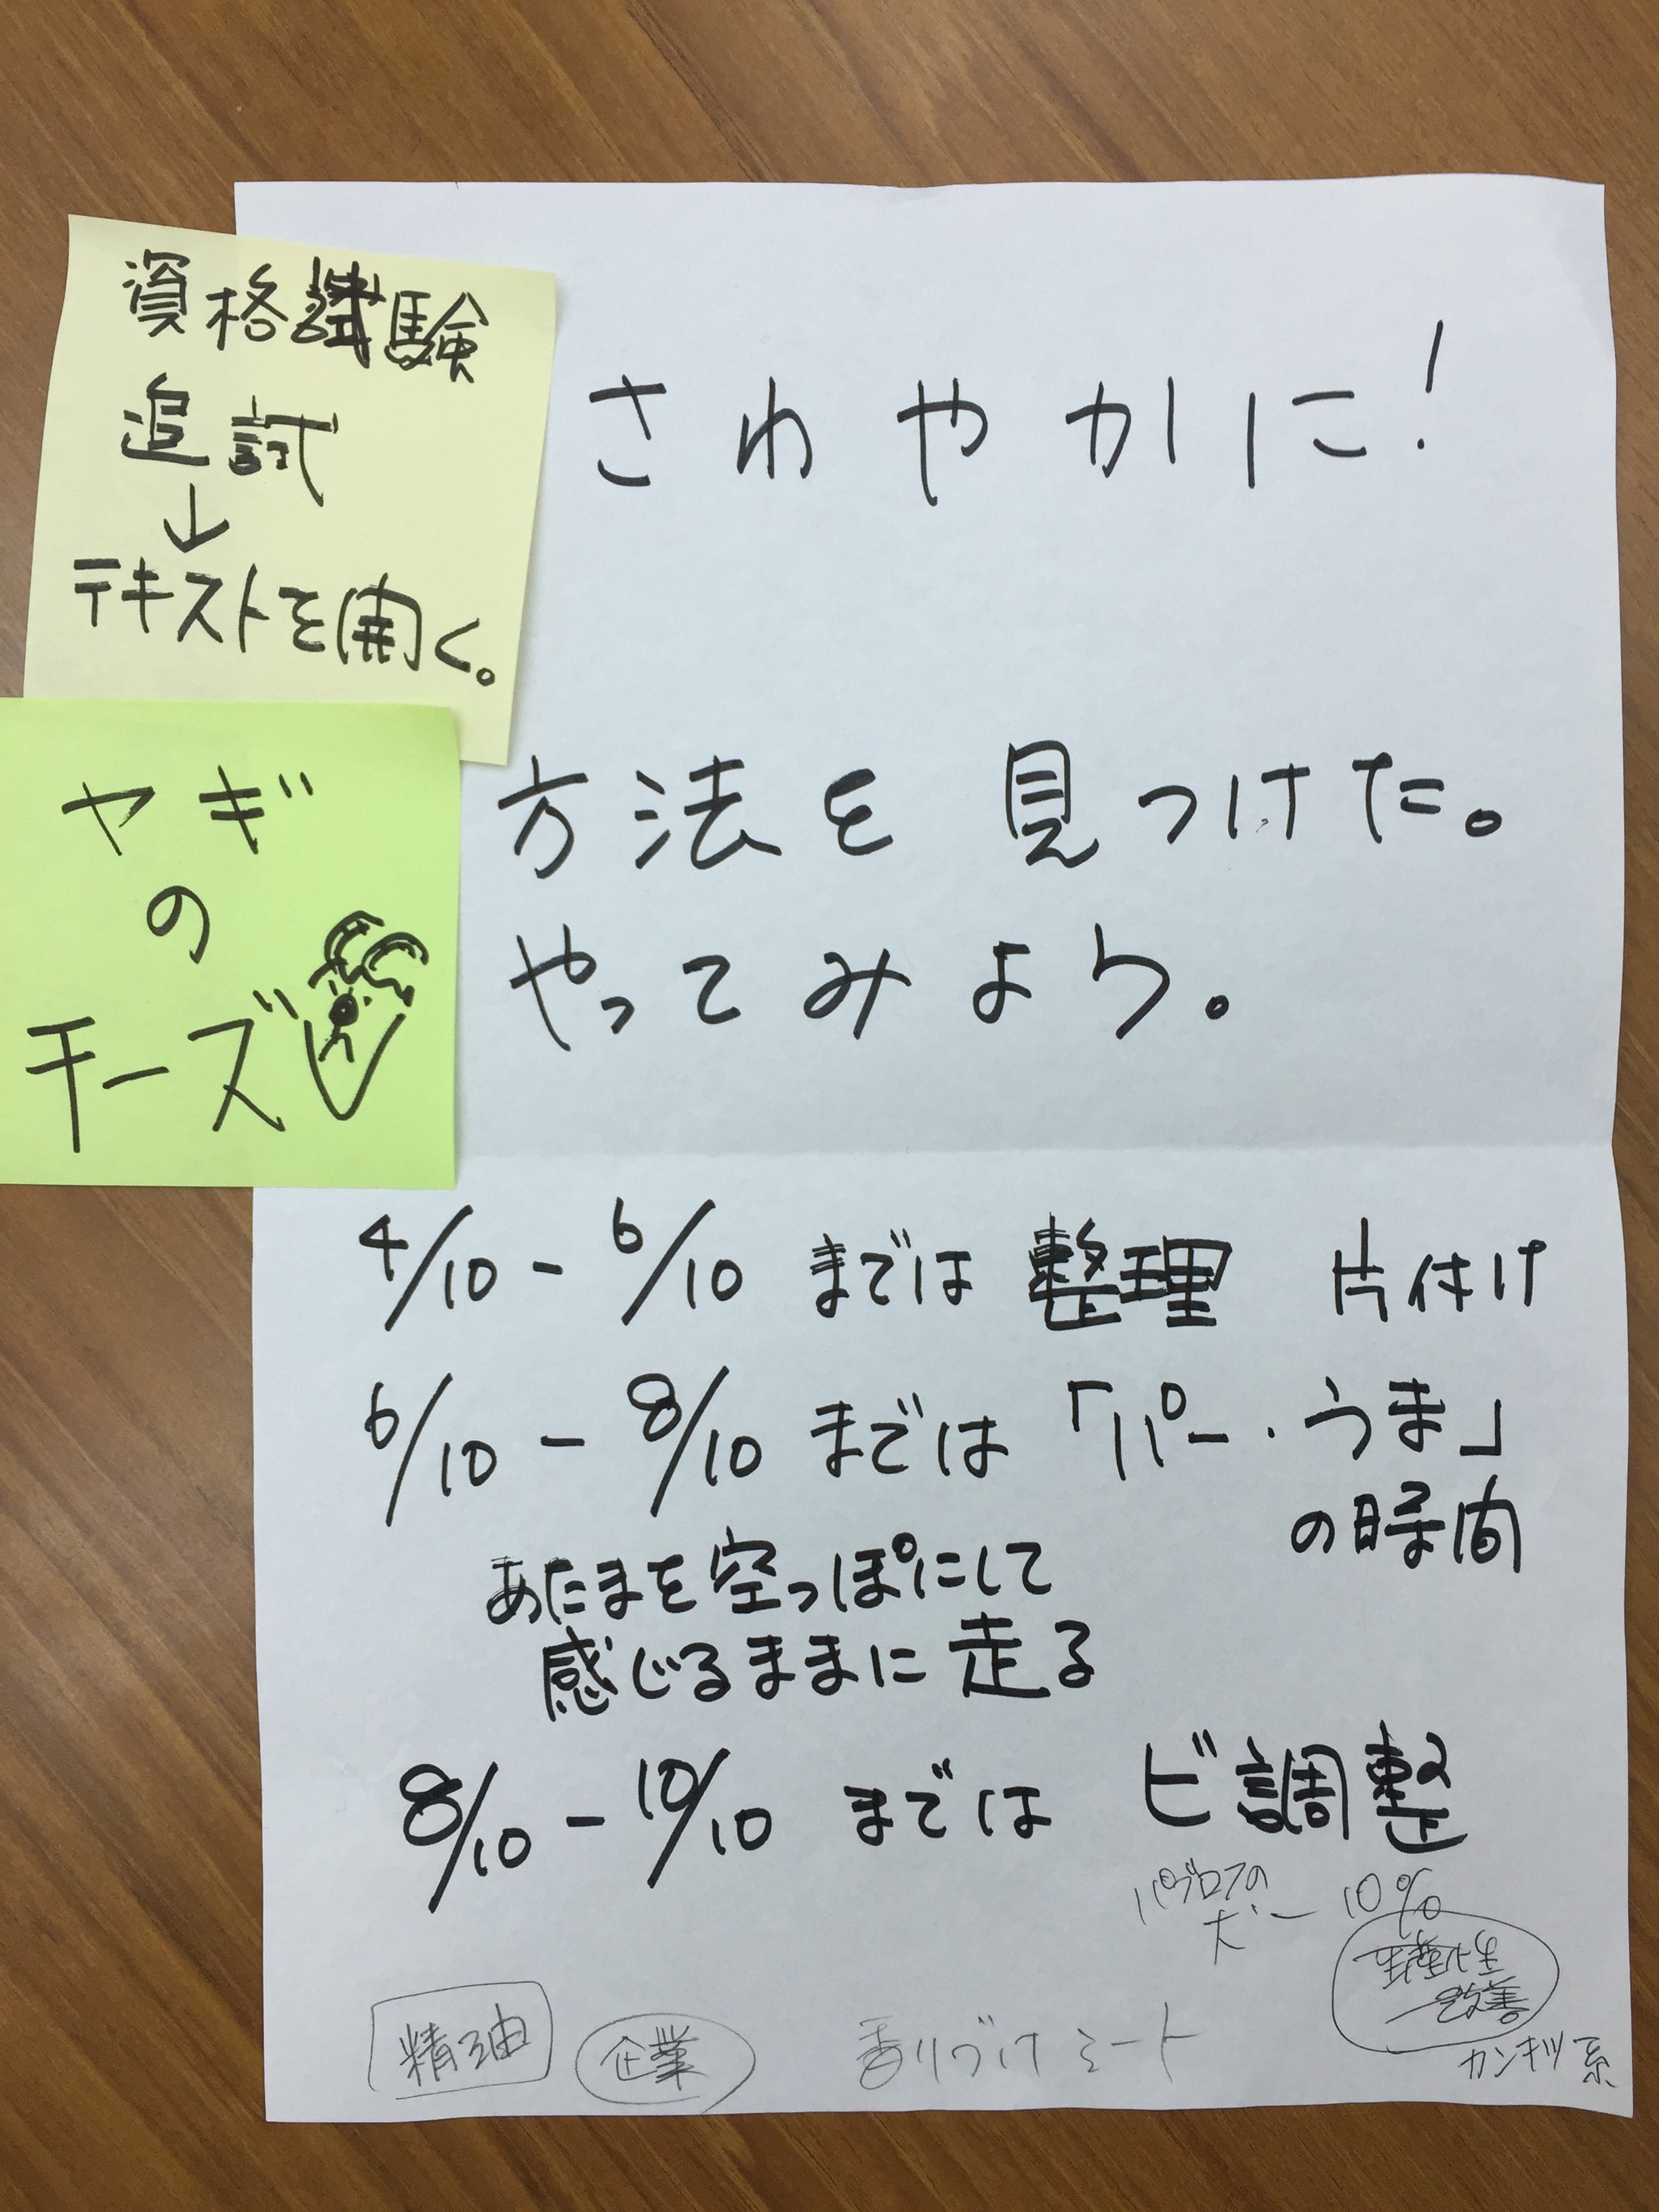 資格試験
追試
↓
テキストを開く。
ヤギ
の
チーズ
さわやかに!
方法を見つけた。
やってみよう。
4/10 - 6/10 までは 整理 片付け
6/10 - 8/10 までは 「パー・うま」
の時間
あたまを空っぽにして
感じるままに走る
8/10 - 10/10 までは ビ調整
パブロフの
犬 — 10%
生産性
改善
カンキツ系
精油
企業
香りづけミート